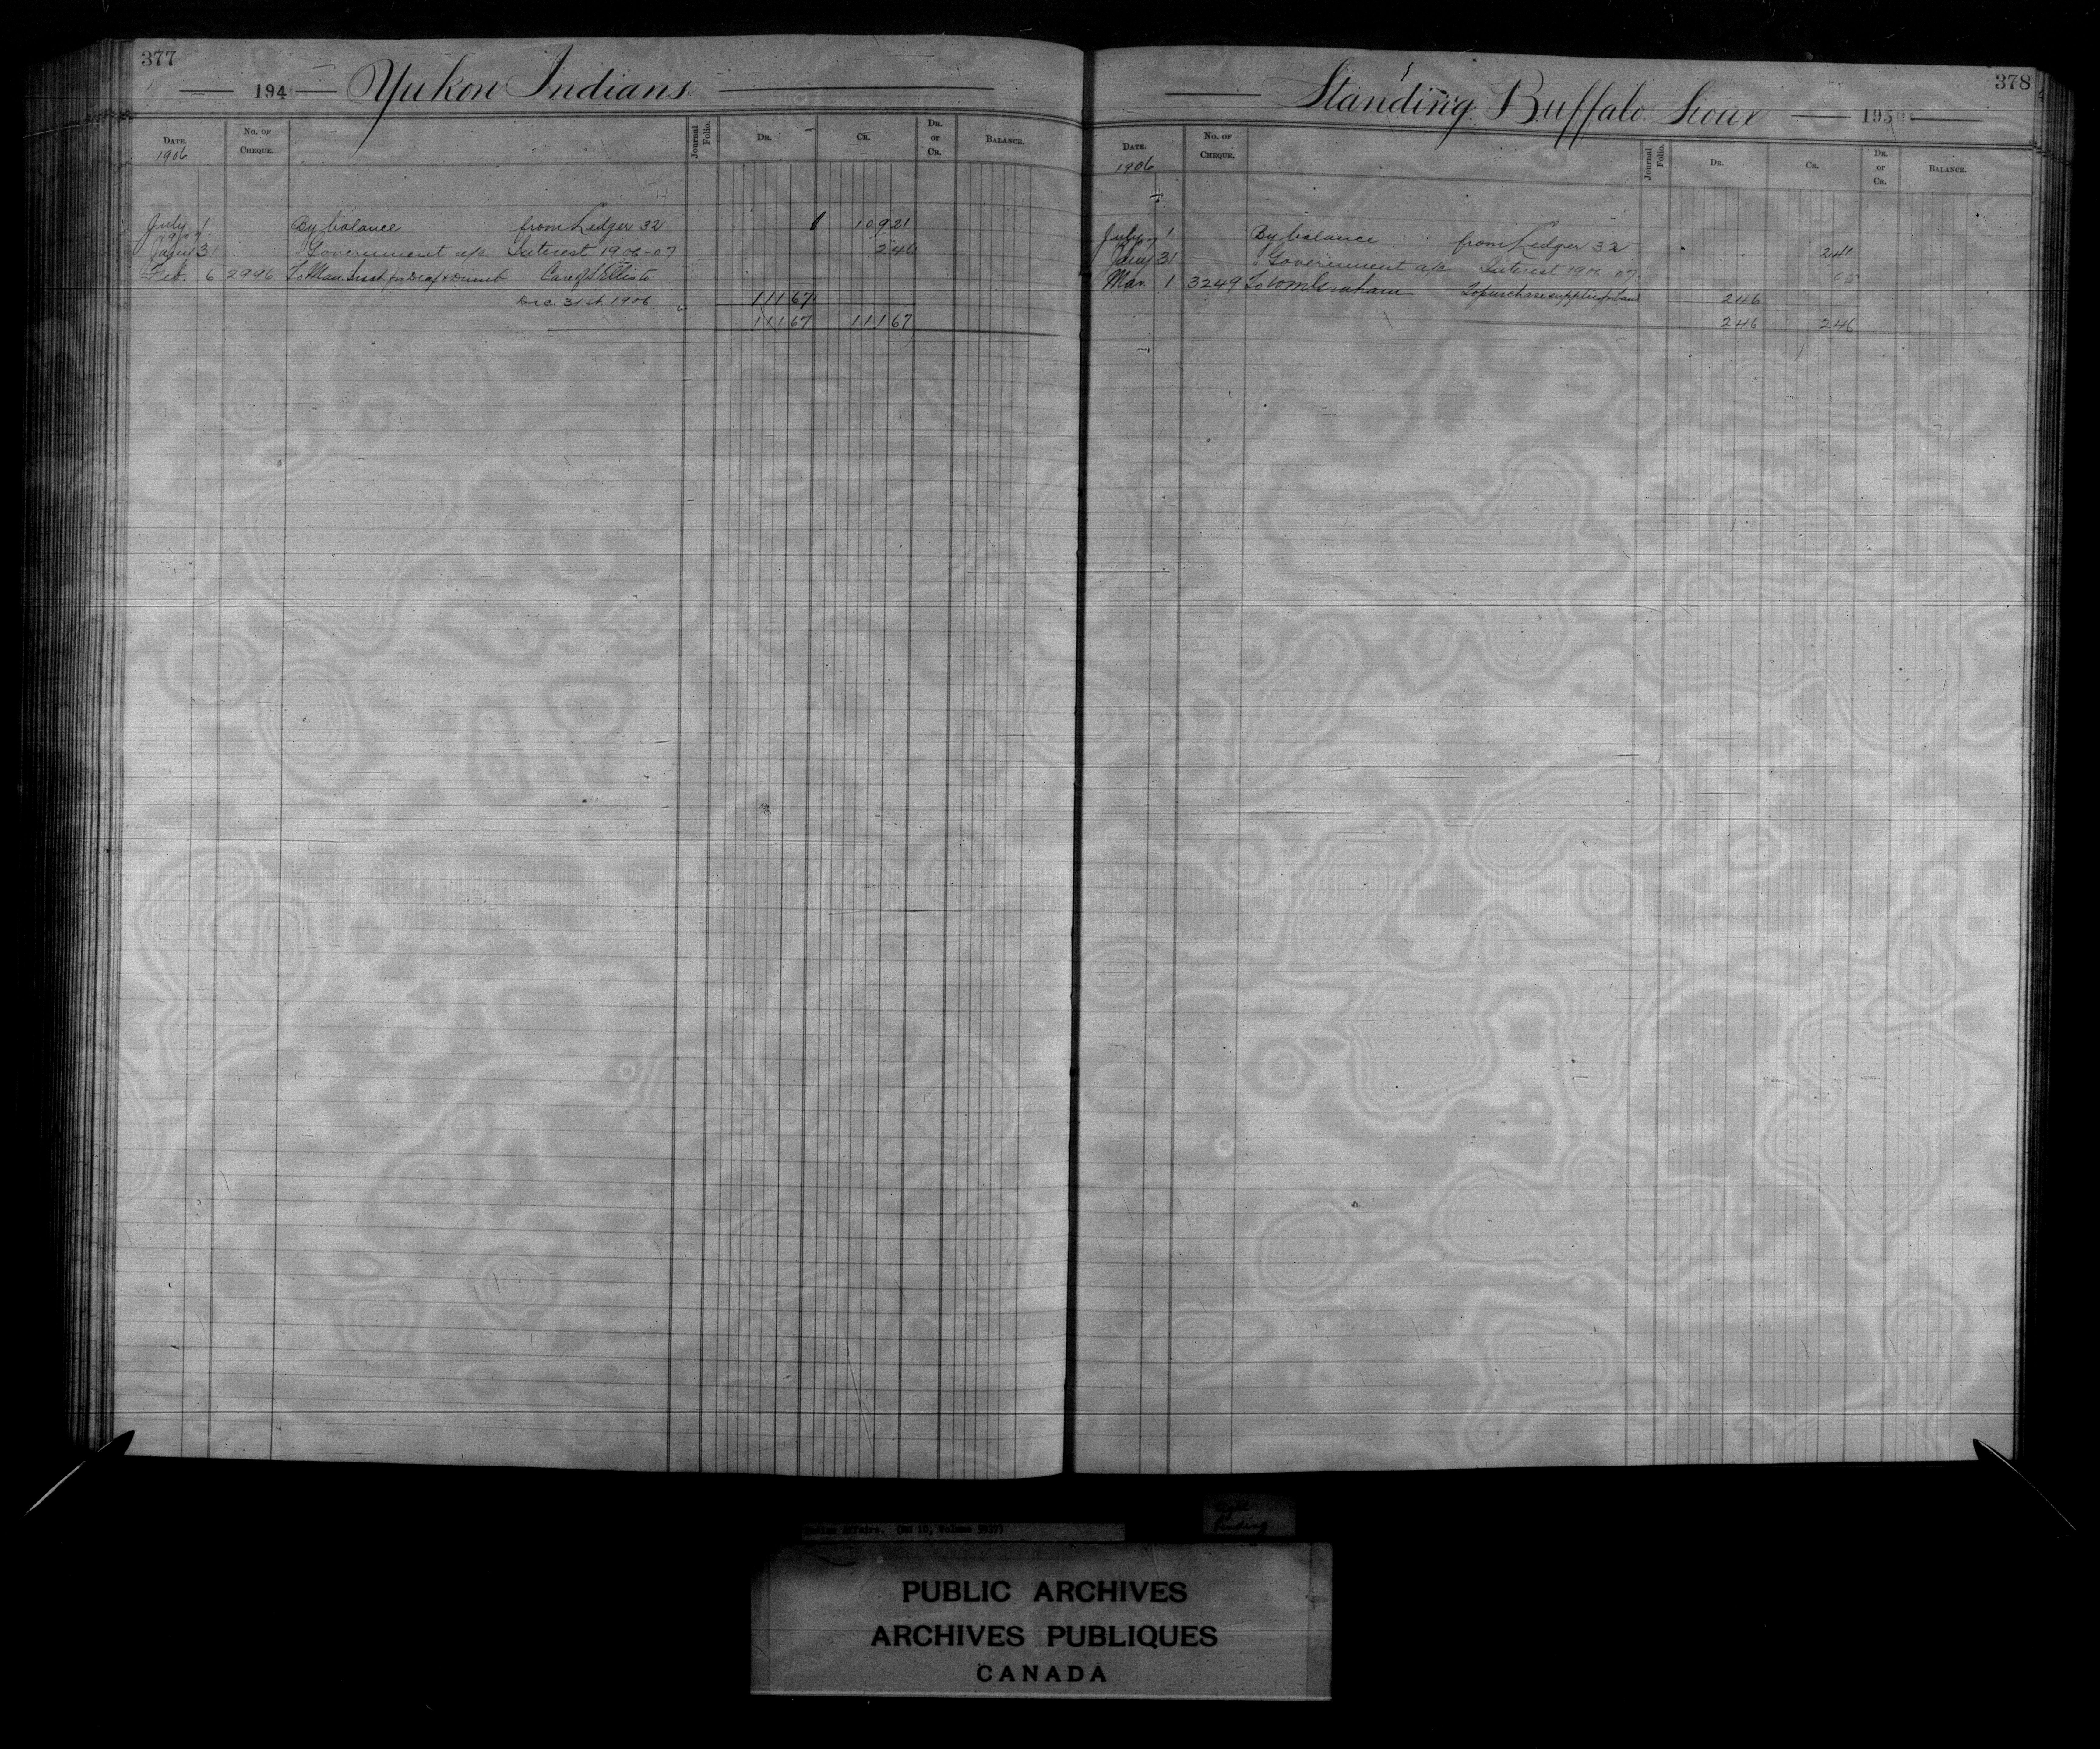 377
194 Yukon Indians
DATE. No. OF CHEQUE. Journal Folio. DR. CR. DR. or CR. BALANCE.
1906
July 1 By balance from Ledger 32 109 21
1907
Jany 31 " Government a/c Interest 1906-07 2 46
Feb. 6 2996 To Man. Inst. for Deaf & Dumb Care of Ellis to
Dec 31st 1906 111 67
111 67 111 67
378
Standing Buffalo Sioux 195
DATE. No. OF CHEQUE. Journal Folio. DR. CR. DR. or CR. BALANCE.
1906
July 1 By balance from Ledger 32 2 41
Jany 31 " Government a/c Interest 1906-07 05
Mar. 1 3249 To Wm Graham To purchase supplies for Band 2 46
2 46 2 46
Indian Affairs. (RG 10, Volume 5937)
Tight
Binding
PUBLIC ARCHIVES
ARCHIVES PUBLIQUES
CANADA